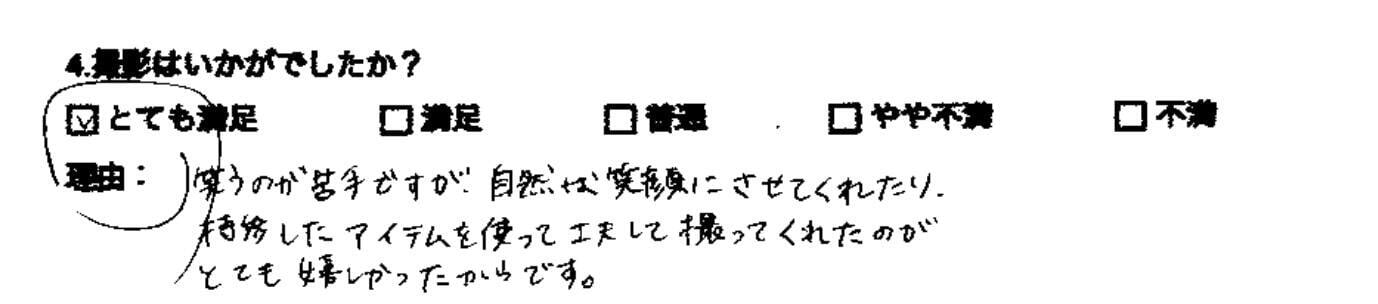 4.撮影はいかがでしたか？
☑とても満足 □満足 □普通 □やや不満 □不満
理由： 笑うのが苦手ですが、自然な笑顔にさせてくれたり、
持参したアイテムを使って工夫して撮ってくれたのが
とても嬉しかったからです。